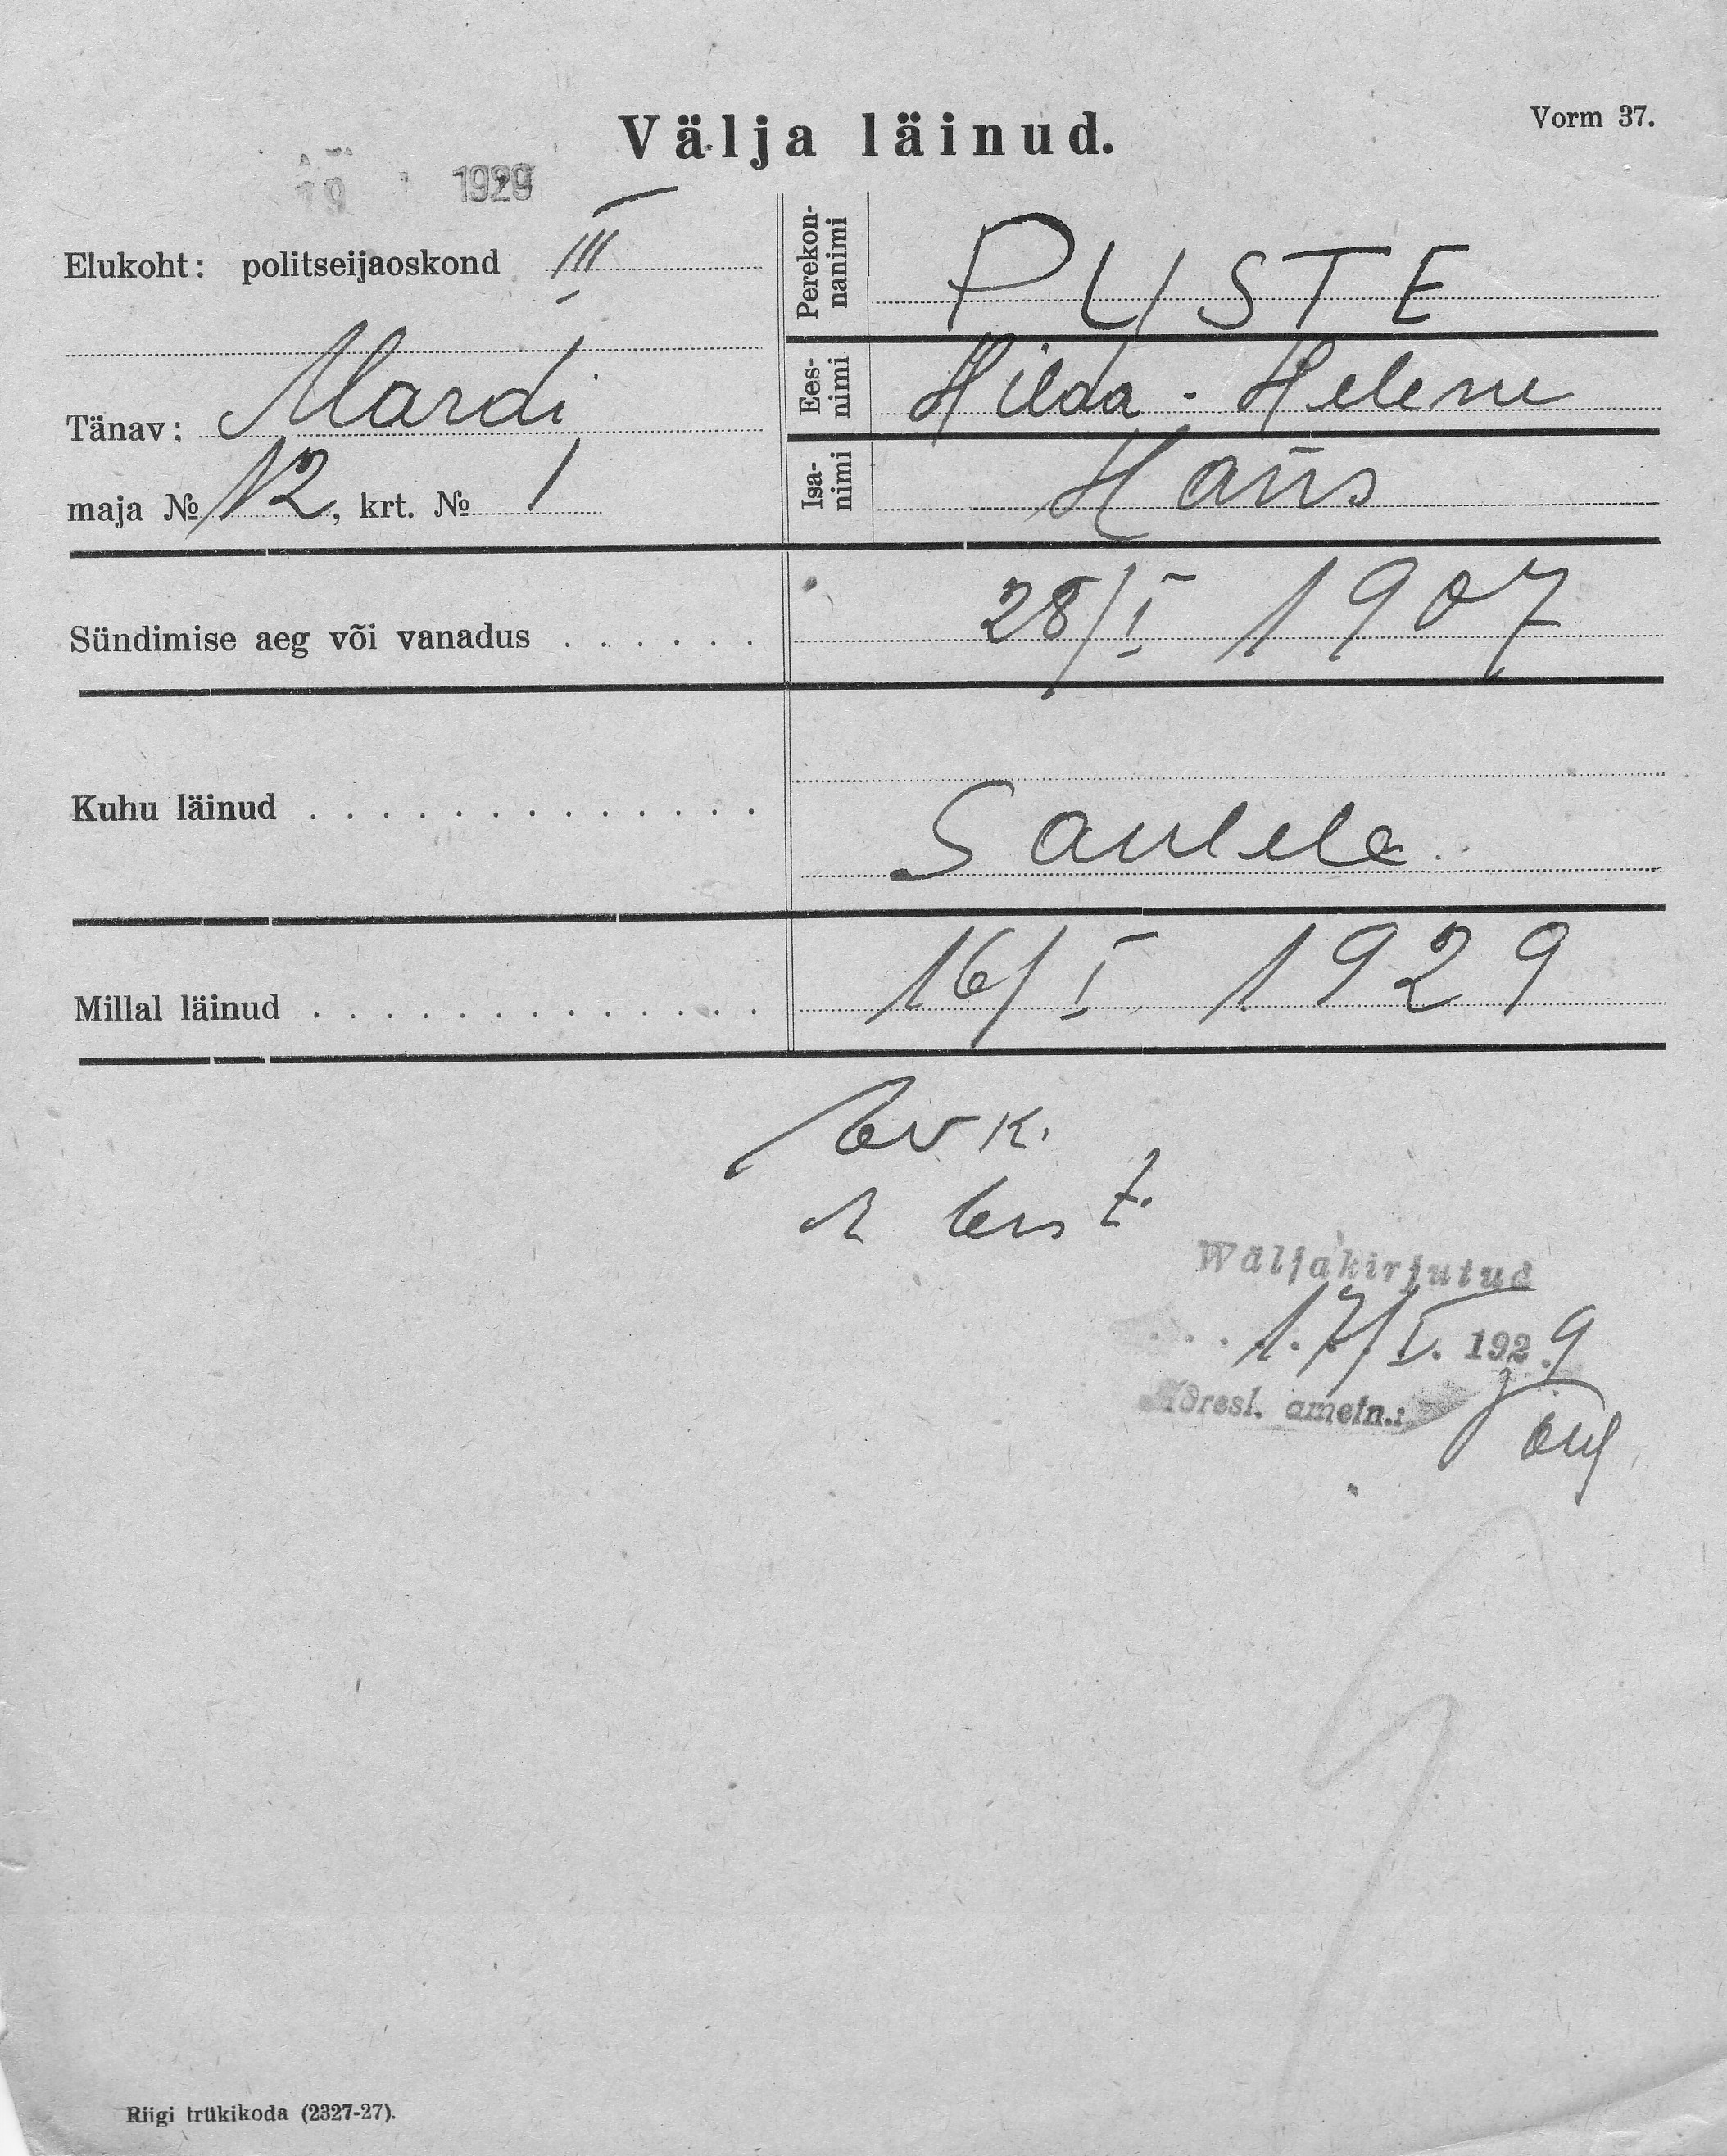 Välja läinud.
Vorm 37.
19 1 1929
Elukoht: politseijaoskond III
Tänav: Mardi
maja № 12, krt. № 1
Perekon-
nanimi
PUSTE
Ees-
nimi
Hilda - Helene
Isa-
nimi
Hans
Sündimise aeg või vanadus . . . . . .
28/I 1907
Kuhu läinud . . . . . . . . . . . . .
Millal läinud . . . . . . . . . . . . .
16/I 1929
Wäljakirjutud
17/I. 1929
Adresl. ametn.:
Riigi trükikoda (2327-27).